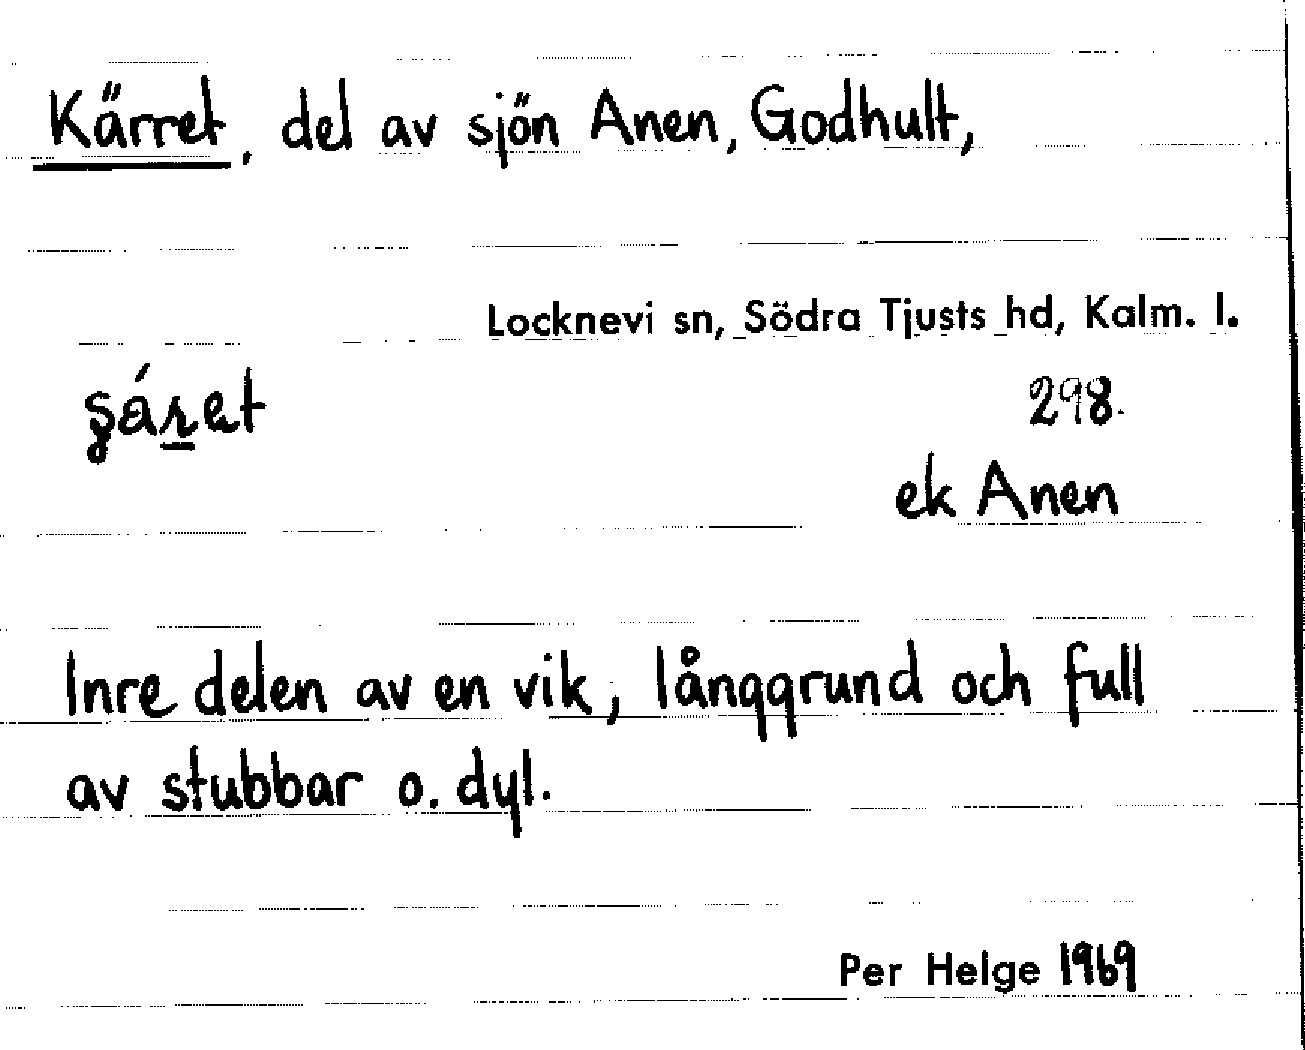 Kärret, del av sjön Anen, Godhult,
Locknevi sn, Södra Tjusts hd, Kalm. l.
298.
ek Anen
Inre delen av en vik, långgrund och full
av stubbar o. dyl.
Per Helge 1969